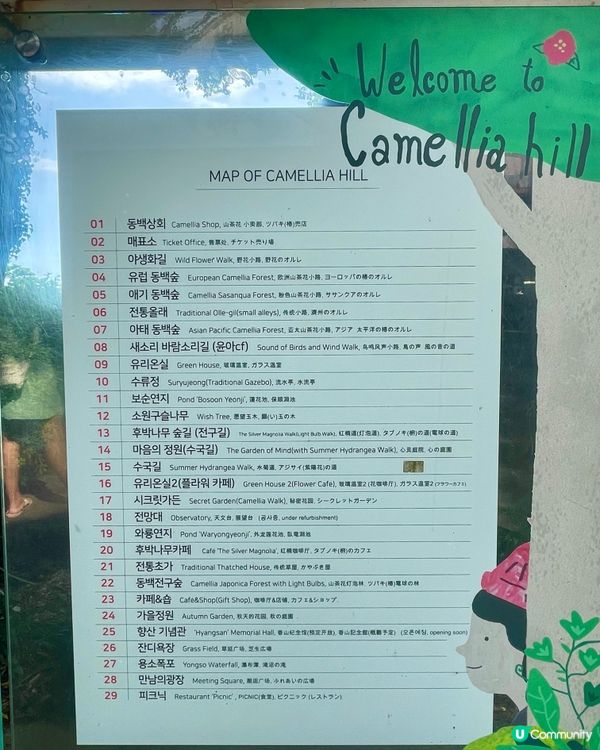 Welcome to
Camellia hill
MAP OF CAMELLIA HILL
01 동백상회 Camellia Shop, 山茶花 小卖部, ツバキ(椿)売店
02 매표소 Ticket Office, 售票处, チケット売り場
03 야생화길 Wild Flower Walk, 野花小路, 野花のオルレ
04 유럽 동백숲 European Camellia Forest, 欧洲山茶花小路, ヨーロッパの椿のオルレ
05 애기 동백숲 Camellia Sasanqua Forest, 粉色山茶花小路, ササンクアのオルレ
06 전통올래 Traditional Olle-gil(small alleys), 传统小路, 済州のオルレ
07 아태 동백숲 Asian Pacific Camellia Forest, 亚太山茶花小路, アジア 太平洋の椿のオルレ
08 새소리 바람소리길 (윤아cf) Sound of Birds and Wind Walk, 鸟鸣风声小路, 鳥の声 風の音の道
09 유리온실 Green House, 玻璃温室, ガラス温室
10 수류정 Suryujeong(Traditional Gazebo), 流水亭, 水流亭
11 보순연지 Pond 'Bosoon Yeonji', 莲花池, 保順淵池
12 소원구슬나무 Wish Tree, 愿望玉木, 願(い)玉の木
13 후박나무 숲길 (전구길) The Silver Magnolia Walk(Light Bulb Walk), 红楠道(灯泡道), タブノキ(椨)の道(電球の道)
14 마음의 정원(수국길) The Garden of Mind(with Summer Hydrangea Walk), 心灵庭院, 心の庭園
15 수국길 Summer Hydrangea Walk, 水菊道, アジサイ(紫陽花)の道
16 유리온실2(플라워 카페) Green House 2(Flower Cafe), 玻璃温室2 (花咖啡厅), ガラス温室2 (フラワーカフェ)
17 시크릿가든 Secret Garden(Camellia Walk), 秘密花园, シークレットガーデン
18 전망대 Observatory, 天文台, 展望台 (공사중, under refurbishment)
19 와룡연지 Pond 'Waryongyeonji', 外龙莲花池, 臥竜淵池
20 후박나무카페 Cafe 'The Silver Magnolia', 红楠咖啡厅, タブノキ(椨)のカフェ
21 전통초가 Traditional Thatched House, 传统草屋, かやぶき屋
22 동백전구숲 Camellia Japonica Forest with Light Bulbs, 山茶花灯泡林, ツバキ(椿)電球の林
23 카페&숍 Cafe&Shop(Gift Shop), 咖啡厅&店铺, カフェ&ショップ
24 가을정원 Autumn Garden, 秋天的花园, 秋の庭園
25 향산 기념관 'Hyangsan' Memorial Hall, 香山纪念馆(预定开放), 香山記念館(概觀予定) (오픈예정, opening soon)
26 잔디욕장 Grass Field, 草庭广场, 芝生広場
27 용소폭포 Yongso Waterfall, 瀑布潭, 滝沼の滝
28 만남의광장 Meeting Square, 聚面广场, ふれあいの広場
29 피크닉 Restaurant 'Picnic', PICNIC(食堂), ピクニック (レストラン)
U Community